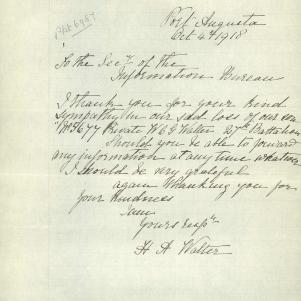 Port Augusta
Oct 4th 1918
To the Secy of the
Information Bureau
I thank you for your kind
Sympathy in our sad loss of our son
Private W G Walter 27th Battalion
Should you be able to forward
any information at any time whatever
I should be very grateful
again thanking you for
your kindness
I am
Yours respy
H A Walter